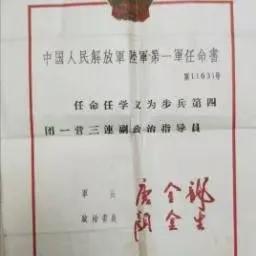 中国人民解放軍陸軍第一軍任命書
第11631号
任命任学义为步兵第四
团一营三連副政治指导員
軍長 唐金龍
政治委員 顏金生